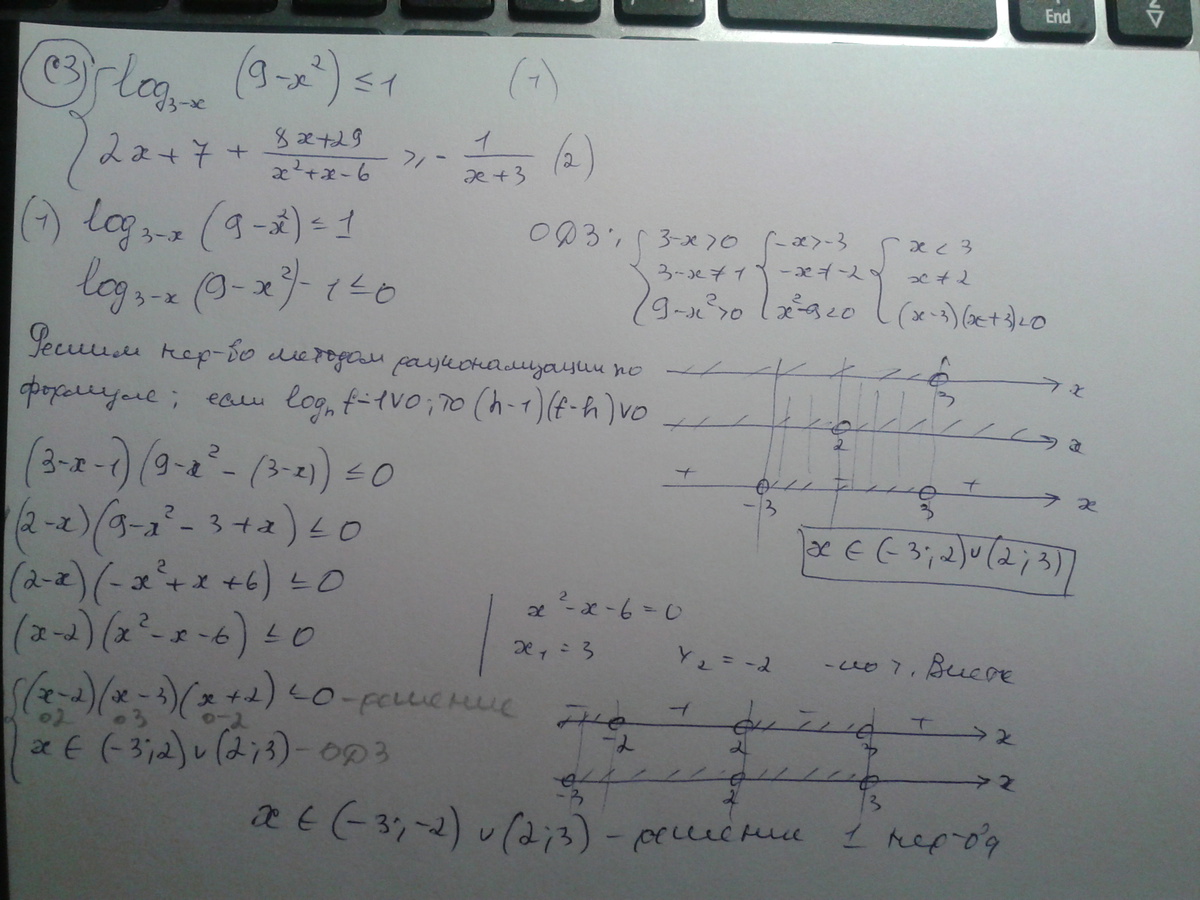 С3 log_{3-x} (9-x²) ≤ 1 (1)
2x+7 + (8x+29)/(x²+x-6) ≥ - 1/(x+3) (2)
(1) log_{3-x} (9-x²) ≤ 1
log_{3-x} (9-x²) - 1 ≤ 0
ОДЗ: { 3-x>0 { -x>-3 { x<3
3-x≠1 -x≠-2 x≠2
9-x²>0 x²-9<0 (x-3)(x+3)<0
Решим нер-во методом рационализации по
формуле; если log_h f-1∨0; то (h-1)(f-h)∨0
3 x
2 x
+ - +
-3 3 x
x ∈ (-3;2)∪(2;3)
(3-x-1)(9-x²-(3-x)) ≤ 0
(2-x)(9-x²-3+x) ≤ 0
(2-x)(-x²+x+6) ≤ 0
(x-2)(x²-x-6) ≤ 0
x²-x-6=0
x₁=3 x₂=-2 -по т. Виета
{ (x-2)(x-3)(x+2) ≤ 0 - решение
02 03 0-2
x ∈ (-3;2)∪(2;3) - ОДЗ
- + - +
-2 2 3 x
-3 2 3 x
x ∈ (-3;-2)∪(2;3) - решение 1 нер-ва
End